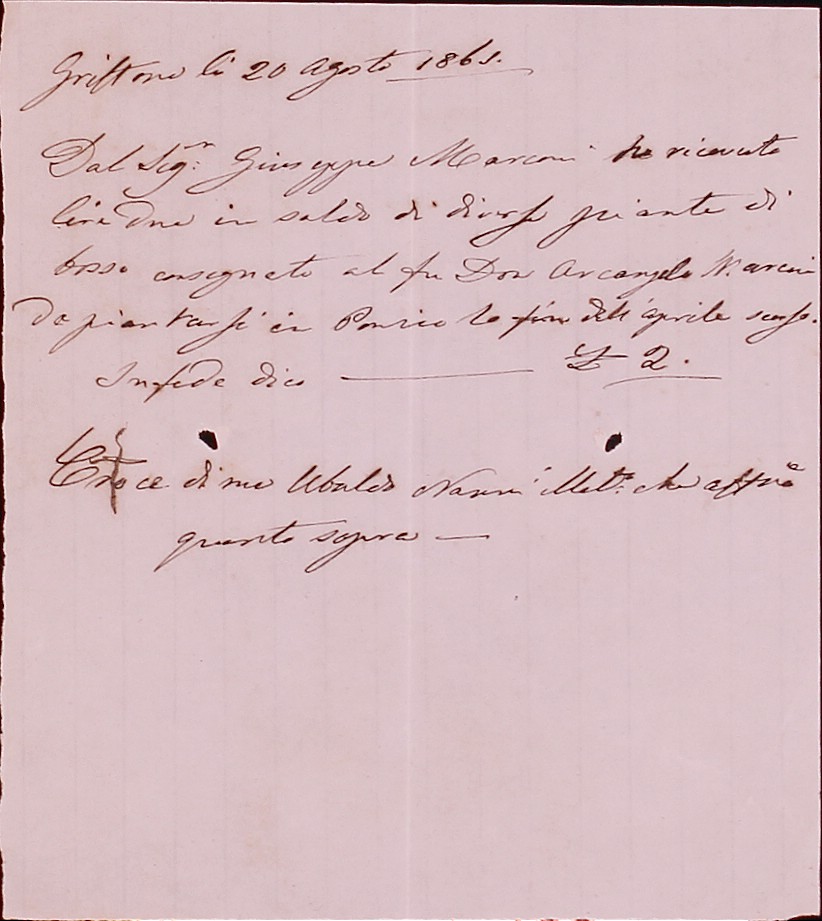 Griffone li 20 Agosto 1861.
Dal Sigr: Giuseppe Marconi ho ricevuto
lire due in saldo di diverse piante di
bosso consegnate al fu Don Arcangelo Marconi
da piantarsi in Ponsio la fine dell'aprile scorso.
In fede dico ——— £ 2.
Croce di me Ubaldo Nanni Illet:o che affermò
quanto sopra —